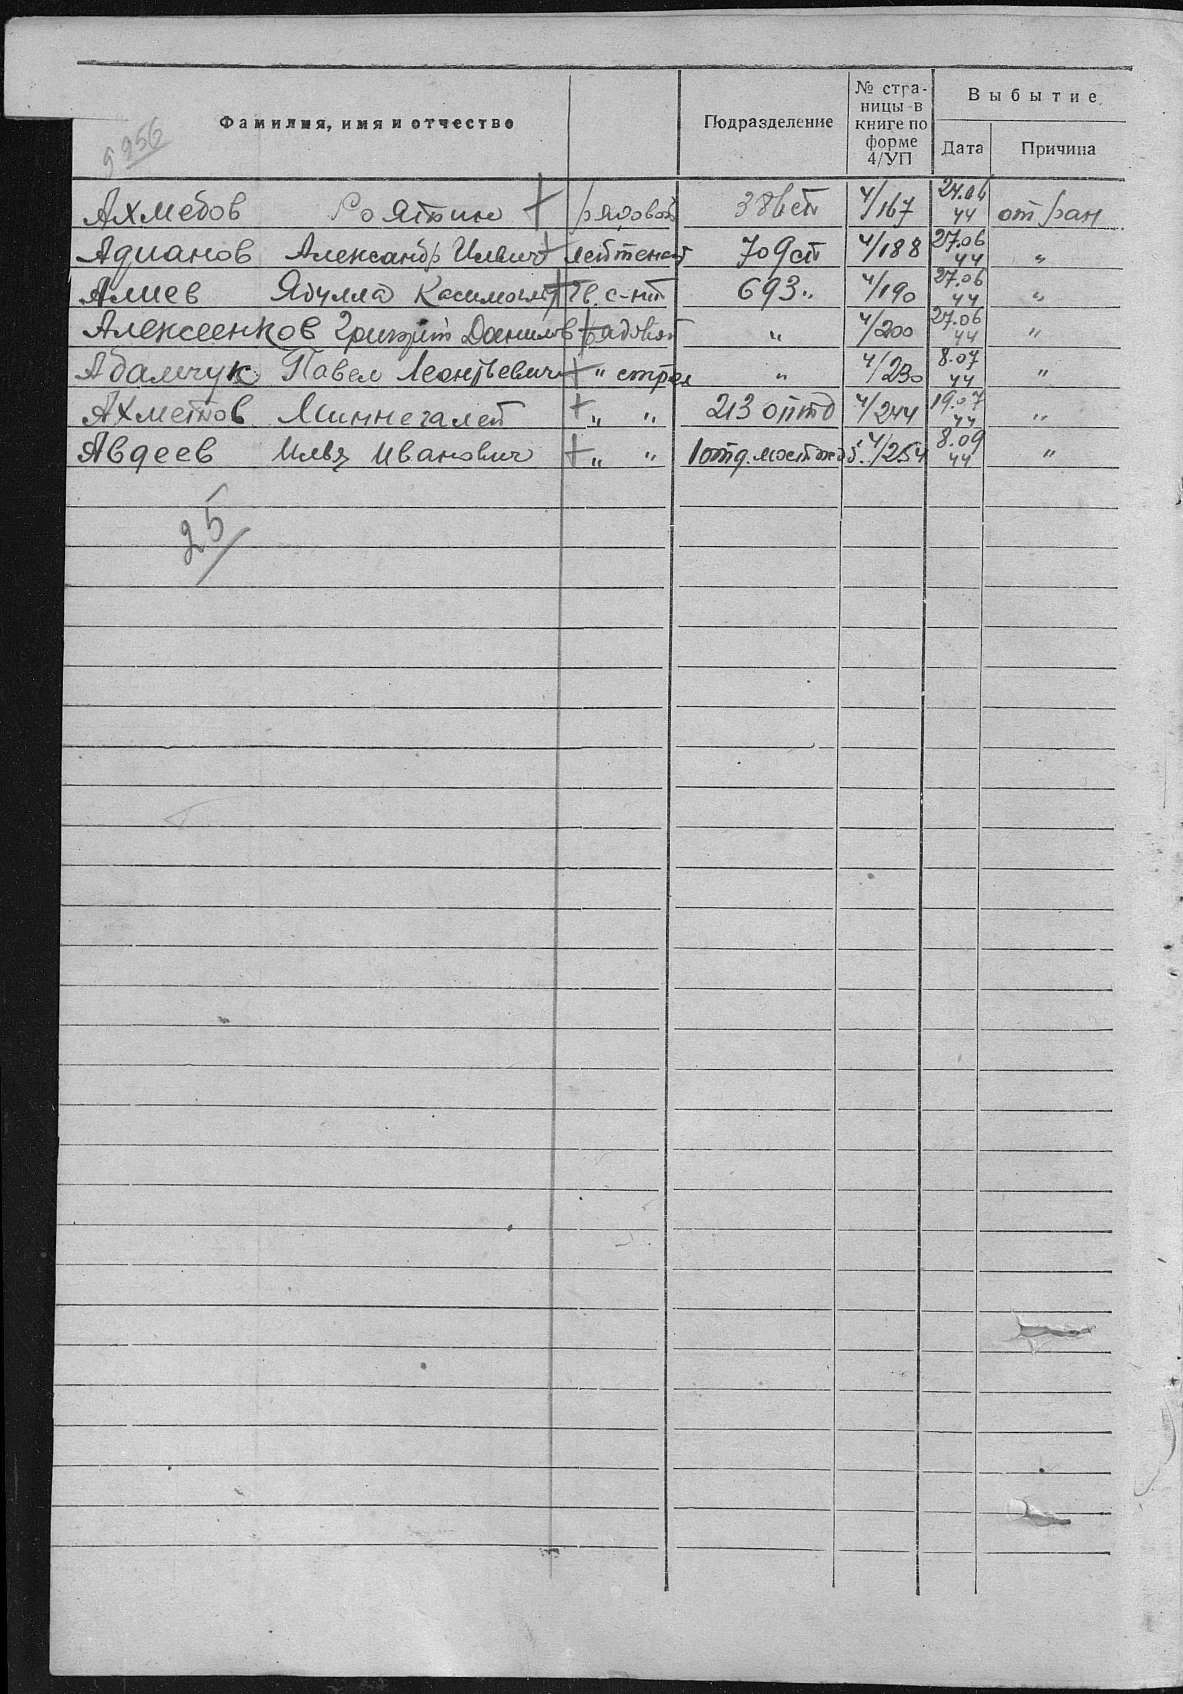 Фамилия, имя и отчество Подразделение № стра- ницы в книге по форме 4/УП Выбытие
Дата Причина
256
Ахмедов + рядовой 4/167 24.06 44 от ран
Адианов Александр Ильич + лейтенант 709 сп 4/188 27.06 44 "
Алиев Ядулла + гв. с-нт 693 " 4/190 27.06 44 "
Алексеенков Григорий Данилов + рядовой " 4/200 27.06 44 "
Адамчук Павел Леонтьевич + " стрел " 4/230 8.07 44 "
Ахметов Миннегалей + " " 213 оптд 4/244 19.07 44 "
Авдеев Илья Иванович + " " 1 отд. 4/254 8.09 44 "
25